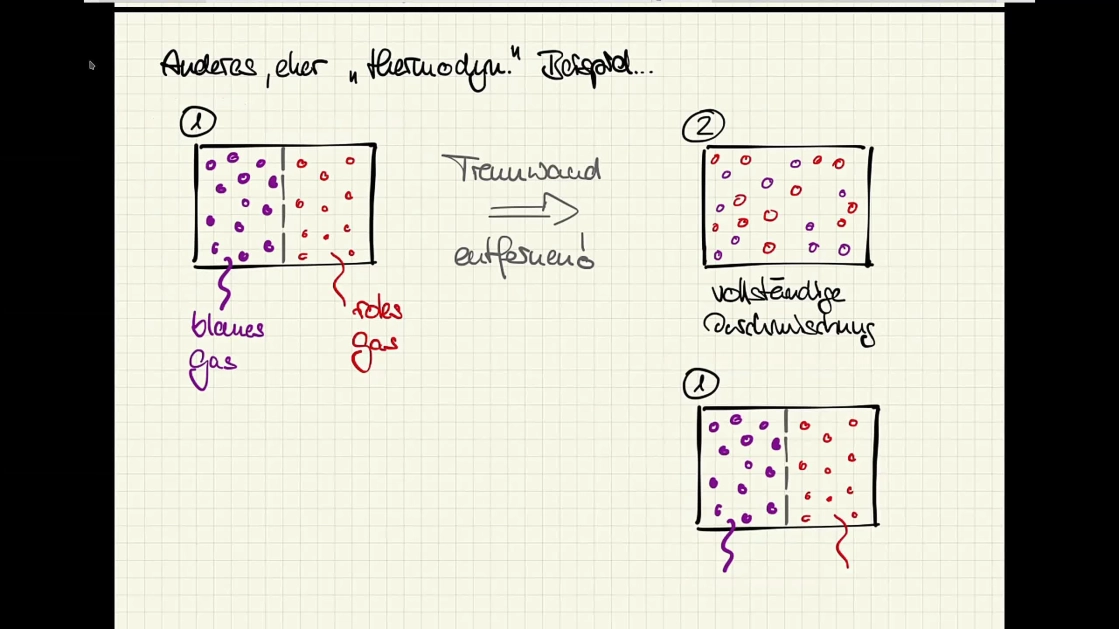 Anderes, eher „thermodyn." Beispiel...
1
2
Trennwand
entfernen!
blaues
Gas
rotes
Gas
vollständige
Durchmischung
1